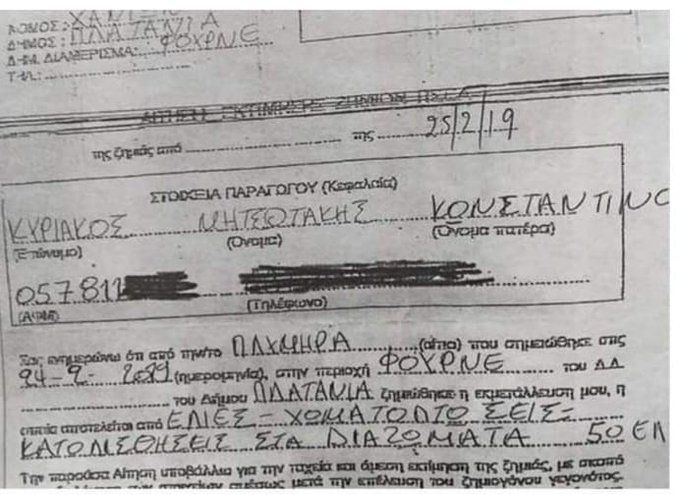 ΝΟΜΟΣ: ΧΑΝΙΩΝ
ΔΗΜΟΣ: ΠΛΑΤΑΝΙΑ
ΔΗΜ. ΔΙΑΜΕΡΙΣΜΑ: ΦΟΥΡΝΕ
ΤΗΛ.:
ΑΙΤΗΣΗ ΕΚΤΙΜΗΣΗΣ ΖΗΜΙΩΝ ΠΣΕΑ
της ζημιάς από ........ της ........ 25/2/19
ΣΤΟΙΧΕΙΑ ΠΑΡΑΓΩΓΟΥ (Κεφαλαία)
ΚΥΡΙΑΚΟΣ ΜΗΤΣΩΤΑΚΗΣ ΚΩΝΣΤΑΝΤΙΝΟ
(Επώνυμο) (Όνομα) (Όνομα πατέρα)
057811
(ΑΦΜ) (Τηλέφωνο)
Σας ενημερώνω ότι από την/το ΠΛΥΜΗΡΑ (αίτιο) που σημειώθηκε στις
24-2-2019 (ημερομηνία), στην περιοχή ΦΟΥΡΝΕ του Δ.Δ.
του Δήμου ΠΛΑΤΑΝΙΑ ζημιώθηκε η εκμετάλλευση μου, η
οποία αποτελείται από ΕΛΙΕΣ - ΧΩΜΑΤΟΠΤΩΣΕΙΣ -
ΚΑΤΟΛΙΣΘΗΣΕΙΣ ΣΤΑ ΔΙΑΖΩΜΑΤΑ 50 ΕΛ
Την παρούσα Αίτηση υποβάλλω για την ταχεία και άμεση εκτίμηση της ζημιάς, με σκοπό
αμέσως μετά την επέλευση του ζημιογόνου γεγονότος.